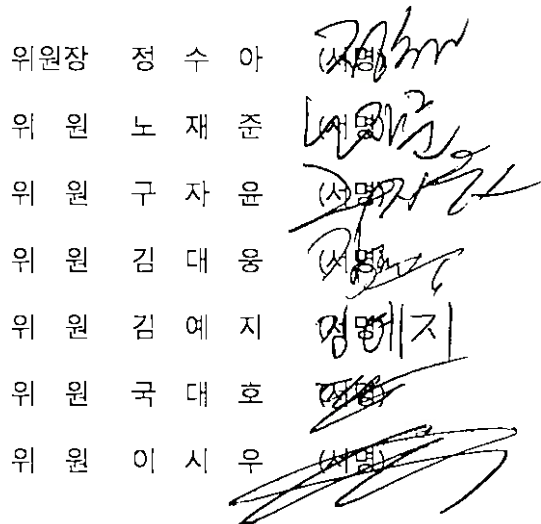 위원장 정 수 아 (서명)
위 원 노 재 준 (서명)
위 원 구 자 윤 (서명)
위 원 김 대 웅 (서명)
위 원 김 예 지 (서명)
위 원 국 대 호 (서명)
위 원 이 시 우 (서명)